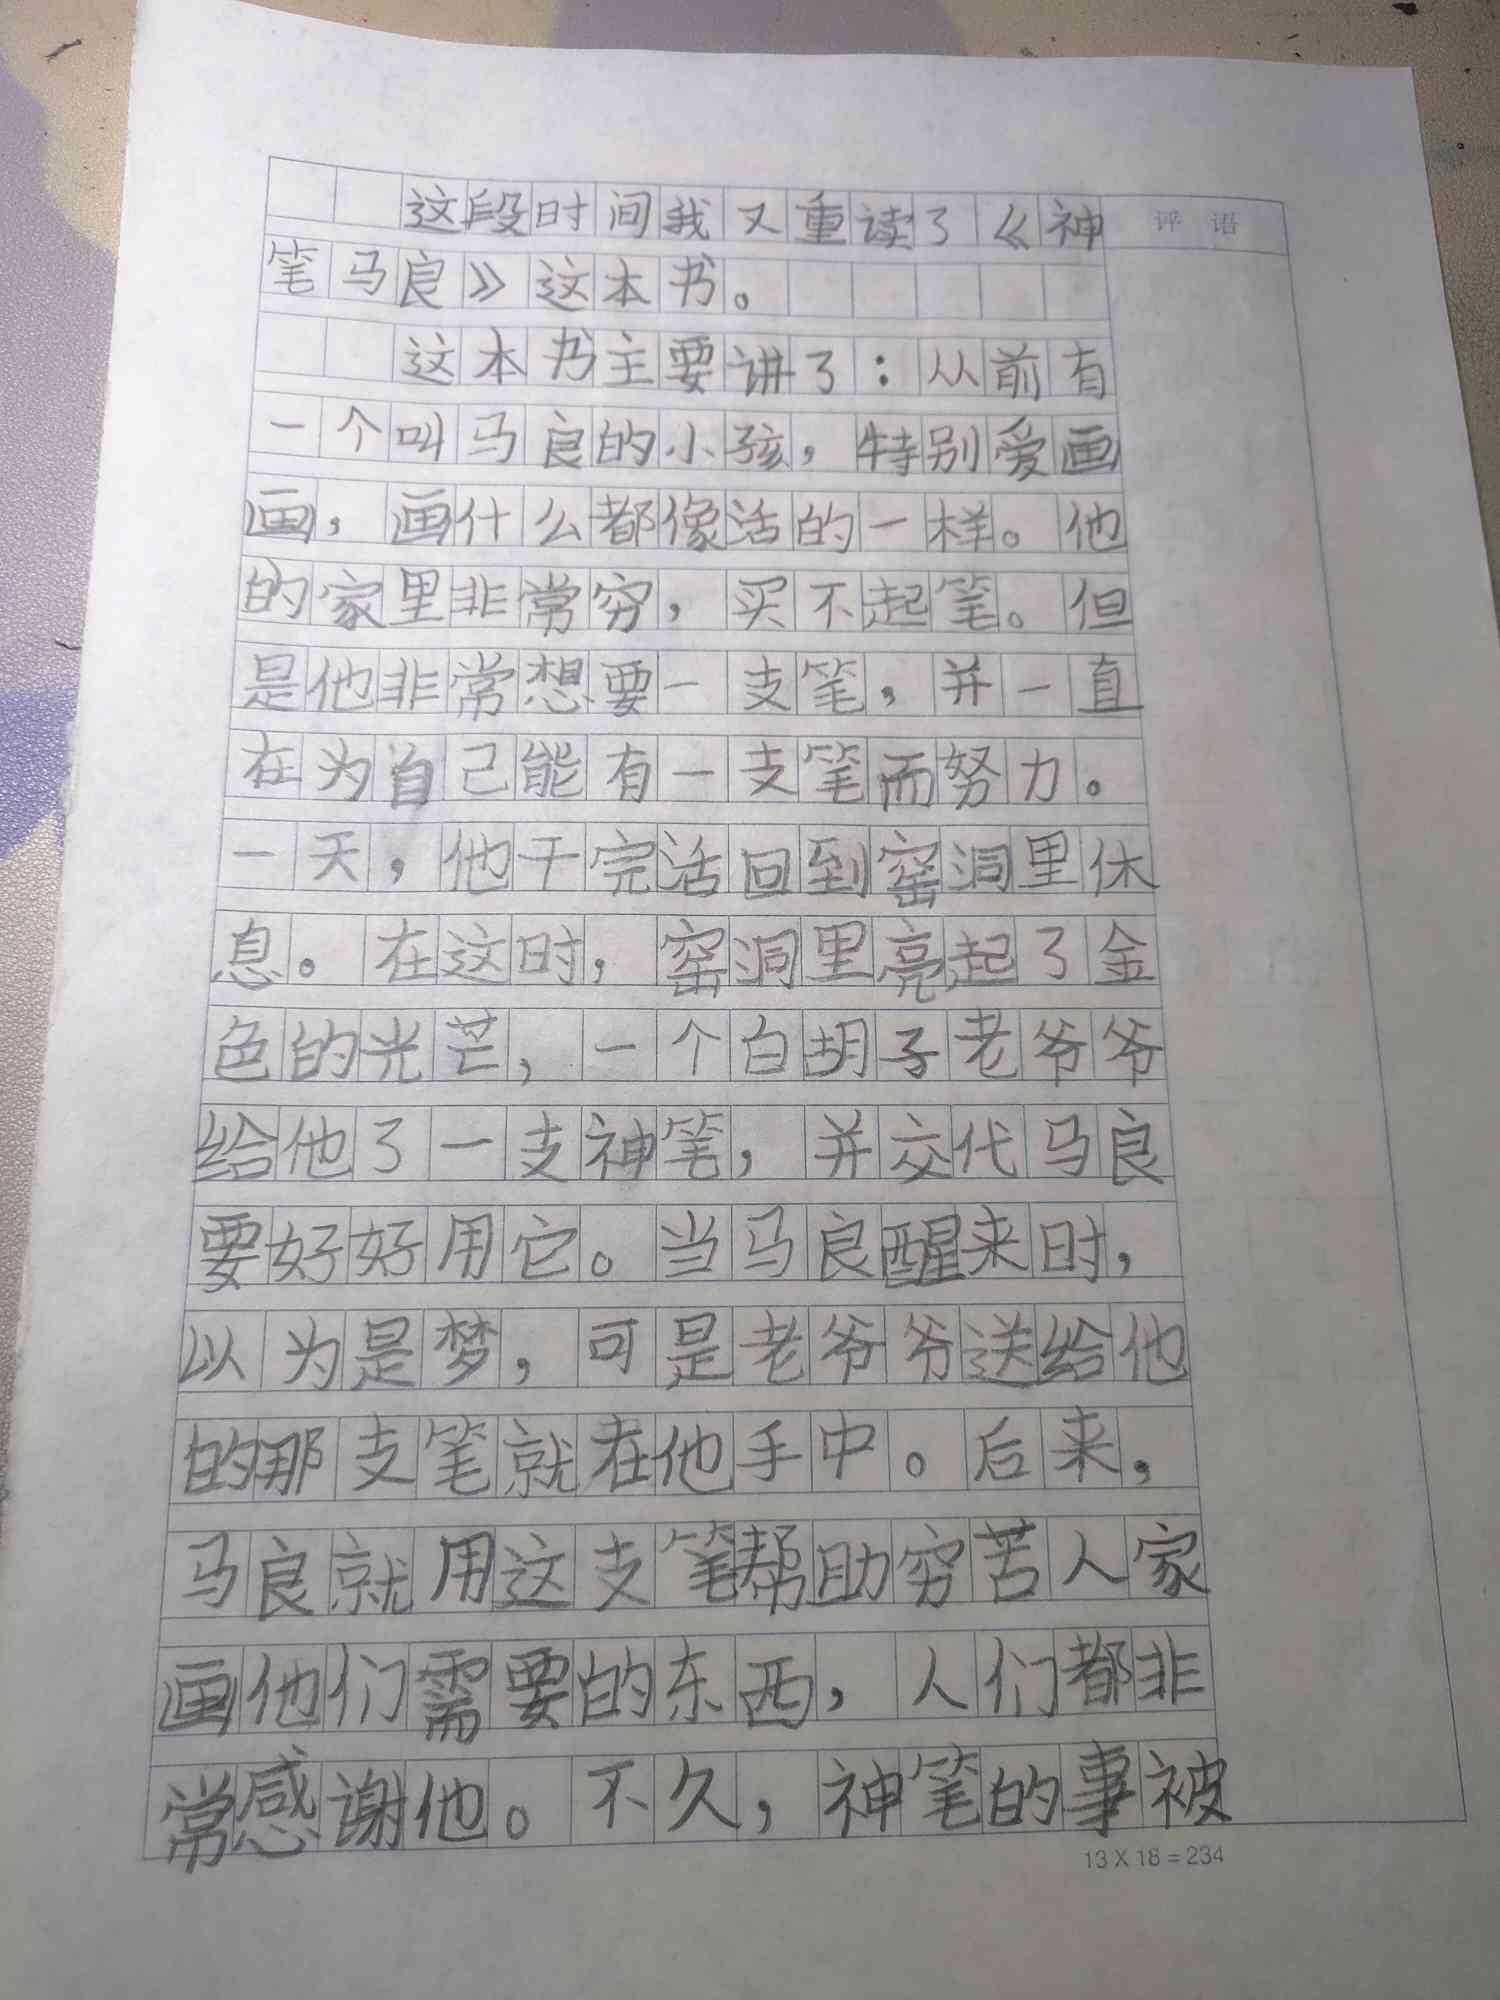 这段时间我又重读了《神
评语
笔马良》这本书。
这本书主要讲了：从前有
一个叫马良的小孩，特别爱画
画，画什么都像活的一样。他
的家里非常穷，买不起笔。但
是他非常想要一支笔，并一直
在为自己能有一支笔而努力。
一天，他干完活回到窑洞里休
息。在这时，窑洞里亮起了金
色的光芒，一个白胡子老爷爷
给他了一支神笔，并交代马良
要好好用它。当马良醒来时，
以为是梦，可是老爷爷送给他
的那支笔就在他手中。后来，
马良就用这支笔帮助穷苦人家
画他们需要的东西，人们都非
常感谢他。不久，神笔的事被
13×18=234